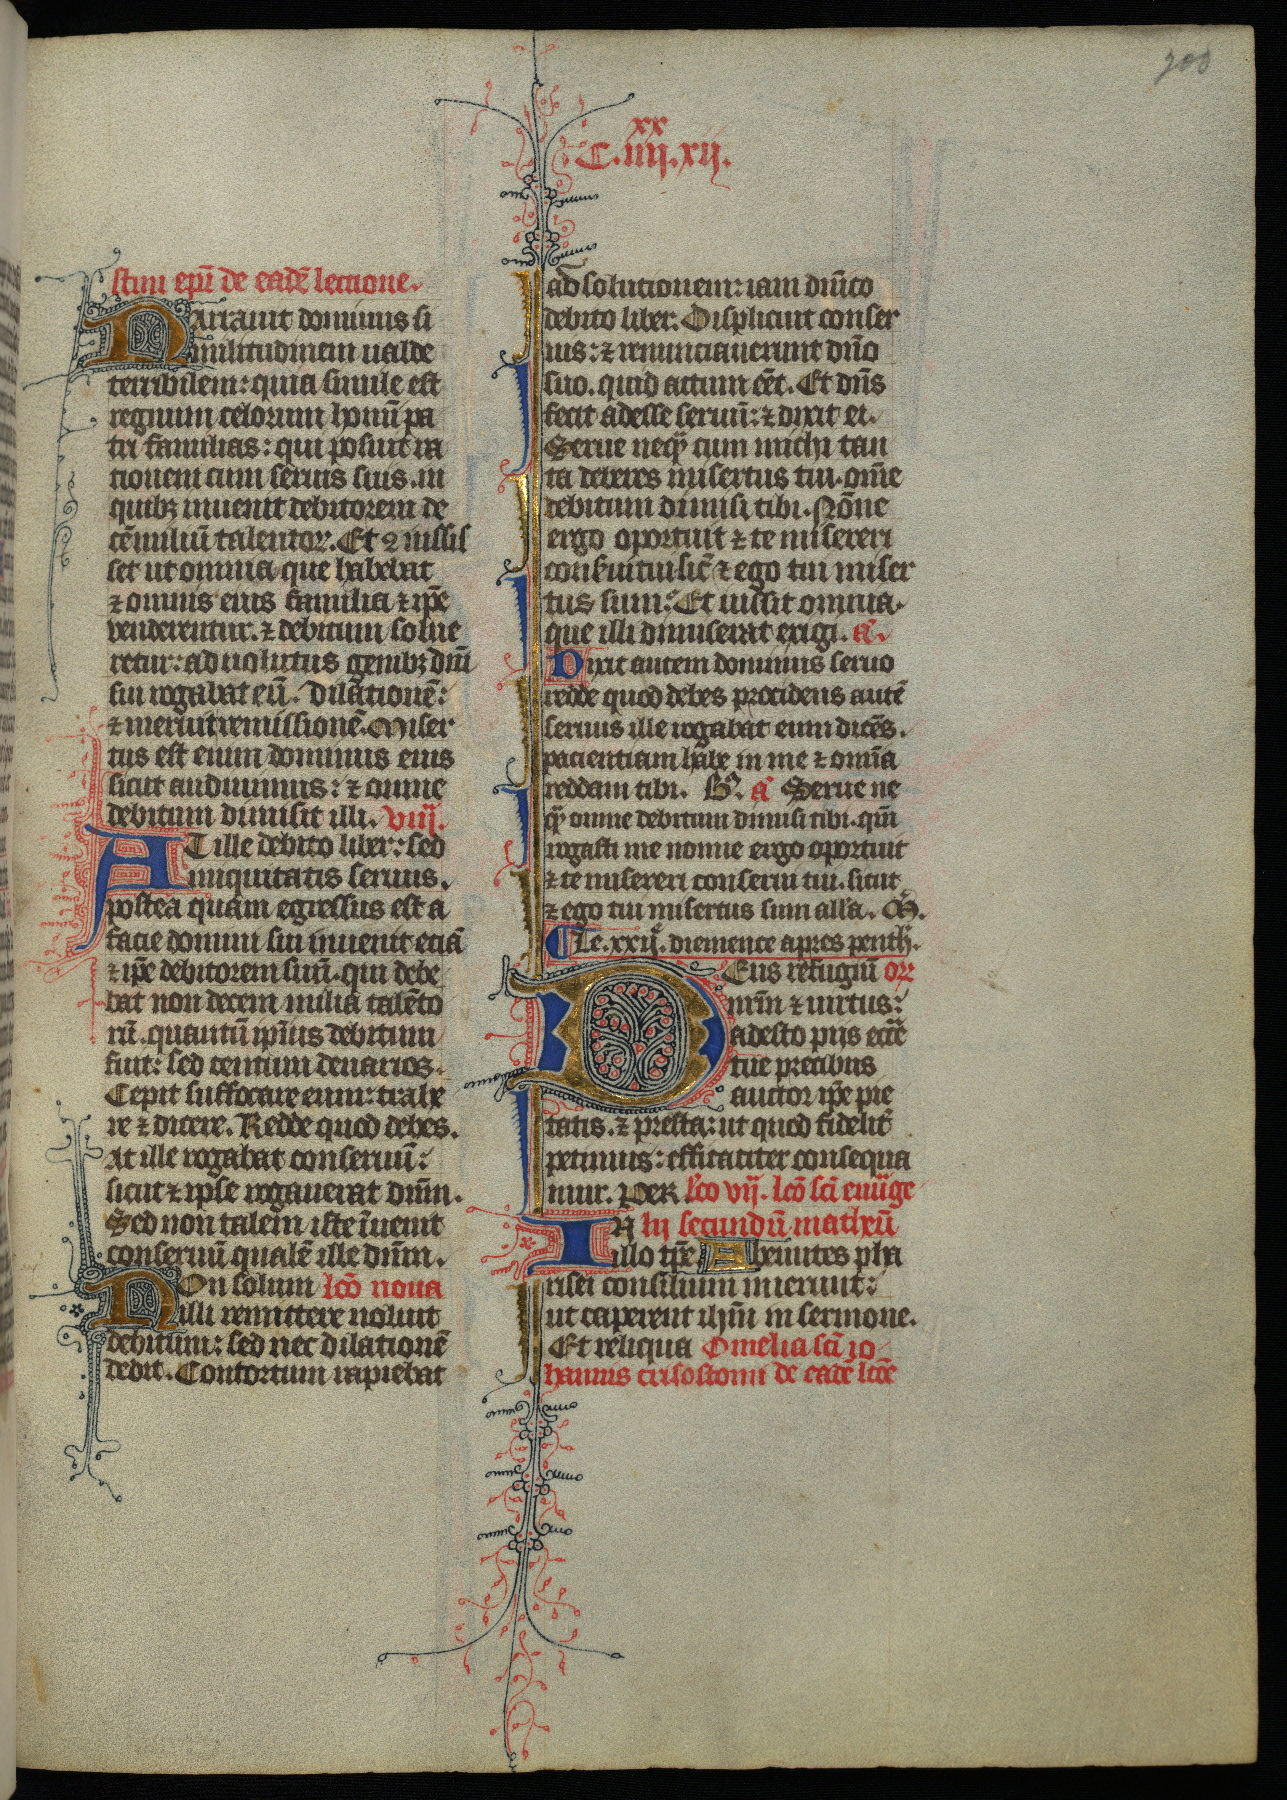 300
xx
C.iiij.xij.
stini epī de eadē lectione.
Narrauit dominus si
militudinem ualde
terribilem: quia simile est
regnum celorum homī pa
tri familias: qui posuit ra
tionem cum seruis suis. in
quibꝫ inuenit debitorem de
cē miliū talentoꝝ. Et iussis
set ut omnia que habebat
⁊ omnis eius familia ⁊ ip̄e
venderentur. ⁊ debitum solue
retur: aduolutus genibꝫ dn̄i
sui rogabat eū. dilationē:
⁊ meruit remissionē. Miser
tus est enim dominus eius
sicut audiuimus: ⁊ omne
debitum dimisit illi. viij.
AT ille debito liber: sed
iniquitatis seruus.
postea quam egressus est a
facie domini sui inuenit eciā
⁊ ip̄e debitorem suū. qui debe
bat non decem milia talēto
rū. quantū ip̄ius debitum
fuit: sed centum denarios.
Cepit suffocare eum: trahe
re ⁊ dicere. Redde quod debes.
At ille rogabat conseruū:
sicut ⁊ ipse rogauerat dn̄m.
Sed non talem iste īuenit
conseruū qualē ille dn̄m.
NOn solum lcō nona
illi remittere noluit
debitum: sed nec dilationē
dedit. Contortum rapiebat
ad solutionem: iam dim̄to
debito liber. Displicuit conser
uis: ⁊ renunciauerunt dn̄o
suo. quid actum eēt. Et dn̄s
fecit adesse seruū: ⁊ dixit ei.
Serue neqꝫ cum michi tan
ta deberes misertus tui. om̄e
debitum dimisi tibi. Nōne
ergo oportuit ⁊ te misereri
conserui tui sic̄ ⁊ ego tui miser
tus sum: Et iussit omnia.
que illi dimiserat exigi. ā.
Dixit autem dominus seruo
redde quod debes procidens autē
seruus ille rogabat eum dicēs.
pacientiam habe in me ⁊ om̄ia
reddam tibi. B'. ā Serue ne
qꝫ omne debitum dimisi tibi. qm̄
rogasti me nonne ergo oportuit
⁊ te misereri conserui tui. sicut
⁊ ego tui misertus sum all'a. M.
Le. xxij. diemence apres penth.
DEus refugiū or̄
nr̄m ⁊ uirtus:
adesto pijs ecc̄e
tue precibus
auctor ip̄e pie
tatis. ⁊ presta: ut quod fidelit'
petimus: efficaciter consequa
mur. PER lc̄o vij. lcō scī euūge
IN lij secundū matheū
illo tp̄e Abeuntes pha
risei consilium inierunt:
ut caperent ih̄m in sermone.
Et reliqua Omelia scī io
hannis crisostomi de eadē lcōe